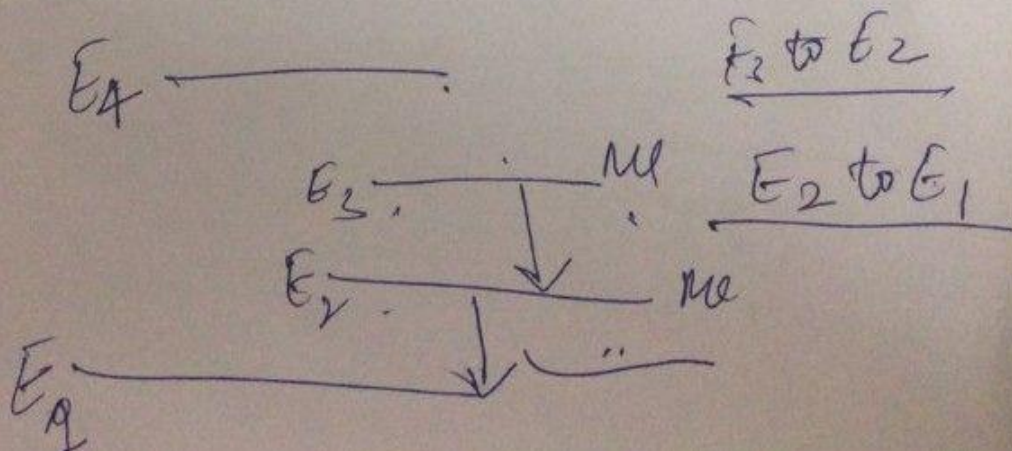 E4
E3 to E2
E3
Me
E2 to E1
E2
Me
E1